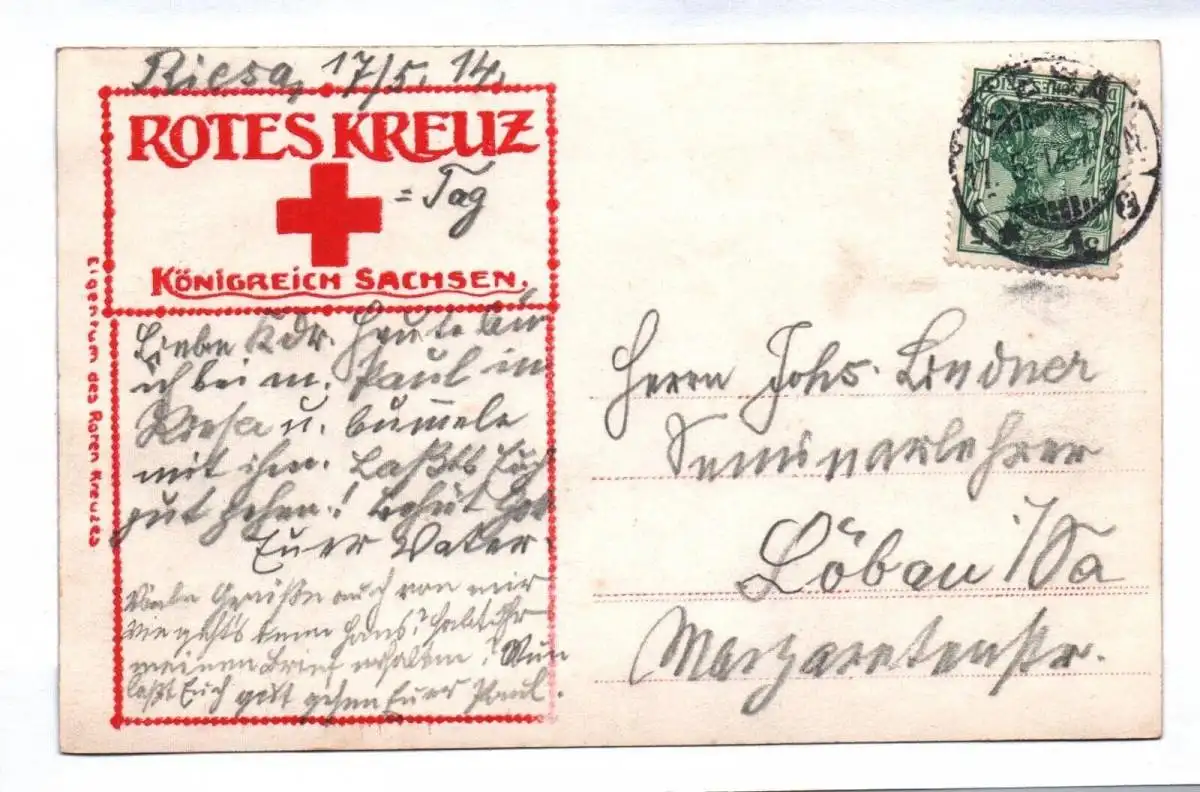 Riesa, 17/5. 14.
ROTES KREUZ
= Tag
KÖNIGREICH SACHSEN.
Eigentum des Roten Kreuzes
Liebe Kdr. Heute bin
ich bei m. Paul in
Riesa u. bummele
mit ihm. Laßts Euch
gut gehen! Behüt Gott
Euer Vater.
Viele Grüße auch von mir
wie gehts denn Hans? Habt Ihr
meinen Brief erhalten? Nun
laßt Euch gut gehen Euer Paul.
DEUTSCHES REICH
Herrn Johs. Lindner
Seminarlehrer
Löbau i/Sa
Margaretenstr.